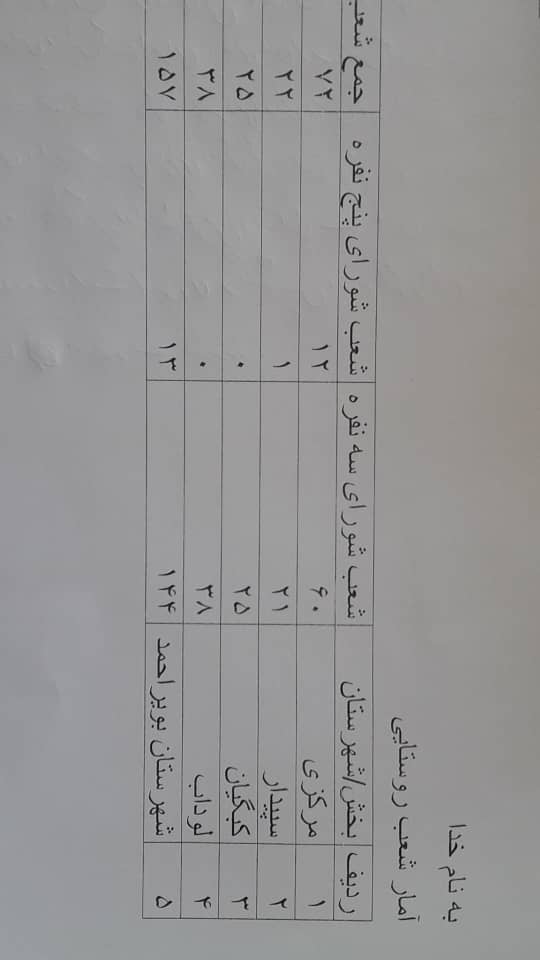 به نام خدا
آمار شعب روستایی
ردیف بخش/شهرستان شعب شورای سه نفره شعب شورای پنج نفره جمع شعب
۱ مرکزی ۶۰ ۱۲ ۷۲
۲ سپیدار ۲۱ ۱ ۲۲
۳ کبگیان ۲۵ ۰ ۲۵
۴ لوداب ۳۸ ۰ ۳۸
۵ شهرستان بویراحمد ۱۴۴ ۱۳ ۱۵۷